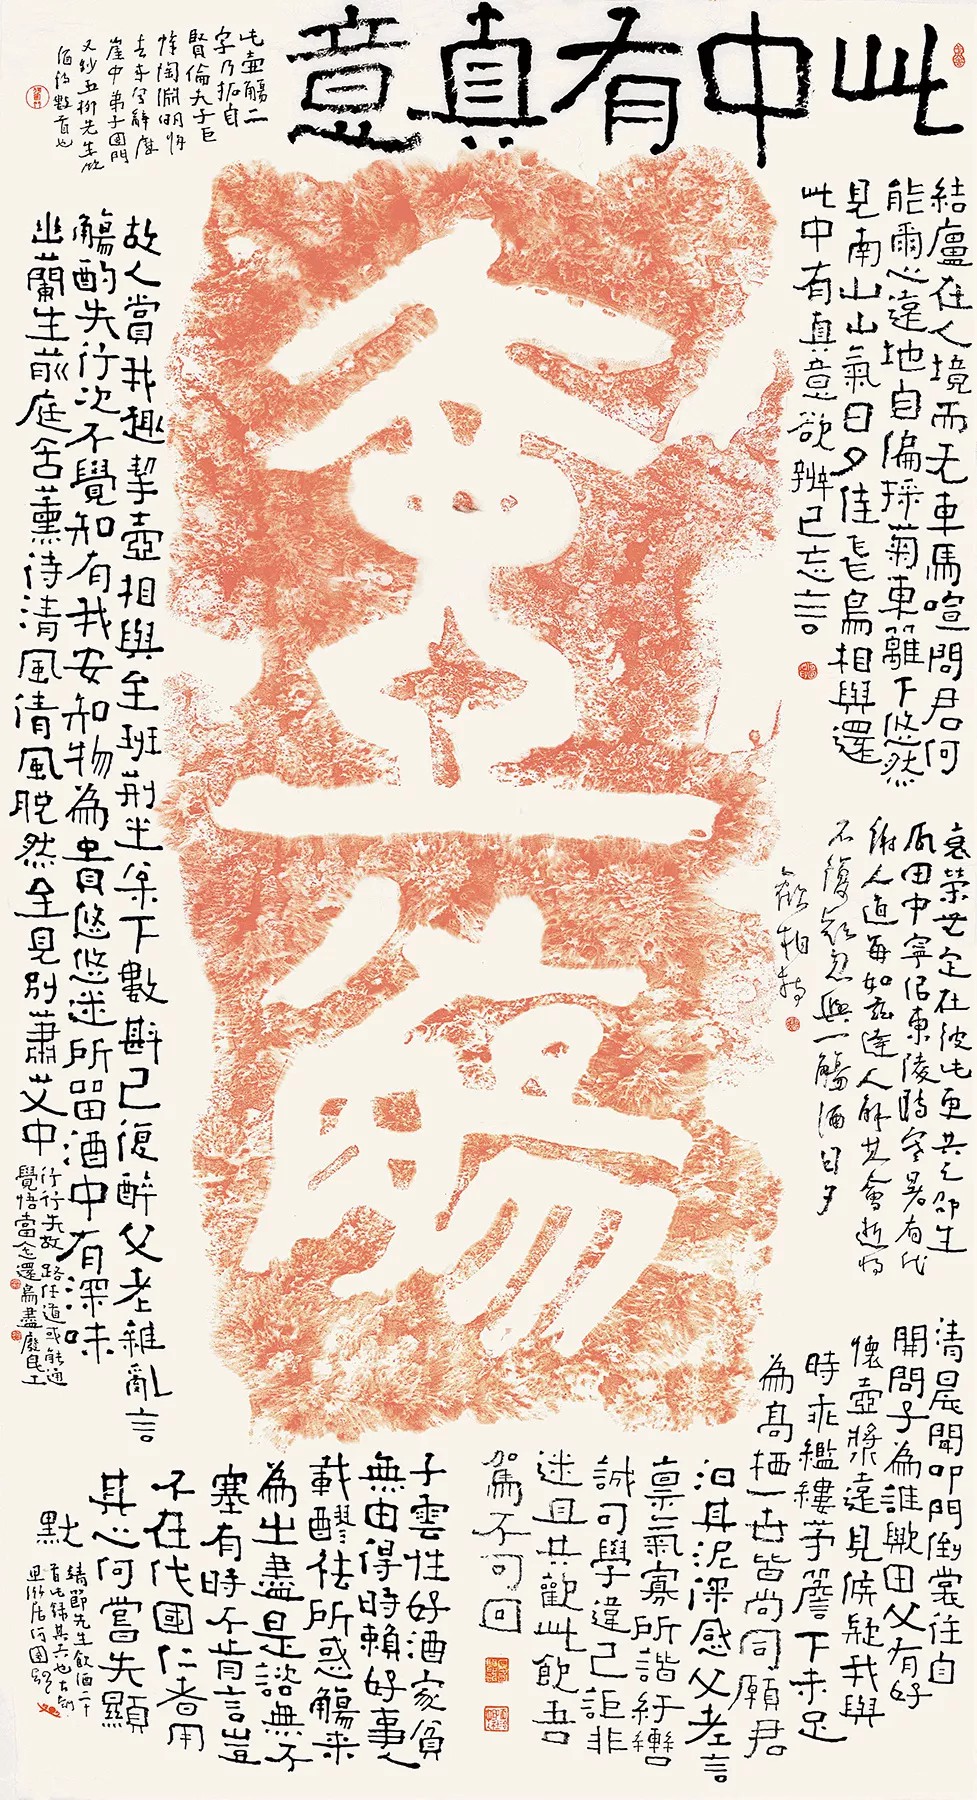 此中有真意
壺觴
結廬在人境而无車馬喧問君何
能爾心遠地自偏採菊東離下悠然
見南山山氣日夕佳飛鳥相與還
此中有真意欲辨已忘言
衰榮無定在彼此更共之邵生
瓜田中寧似東陵時寒暑有代
謝人道每如茲達人解其會逝將
不復疑忽與一觴酒日夕
歡相持
清晨聞叩門倒裳往自
開問子為誰歟田父有好
懷壺漿遠見候疑我與
時乖襤縷茅簷下未足
為高栖一世皆尚同願君
汩其泥深感父老言
禀氣寡所諧紆轡
誠可學違己詎非
迷且共歡此飲吾
駕不可回
子雲性好酒家貧
無由得時賴好事人
載醪祛所惑觴來
為之盡是諮無不
塞有時不肯言豈
不在伐國仁者用
其心何嘗失顯
默
靖節先生飲酒二十
首此錄其六也
故人賞我趣挈壺相與至班荊坐松下數斟已復醉父老雜亂言
觴酌失行次不覺知有我安知物為貴悠悠迷所留酒中有深味
幽蘭生前庭含薰待清風清風脫然至見別蕭艾中
行行失故路任道或能通
覺悟當念還鳥盡廢良弓
此壺觴二
字乃拓自
賢倫夫子巨
帷陶淵明

崖中弟子國門
又鈔五柳先生飲
酒詩數首也